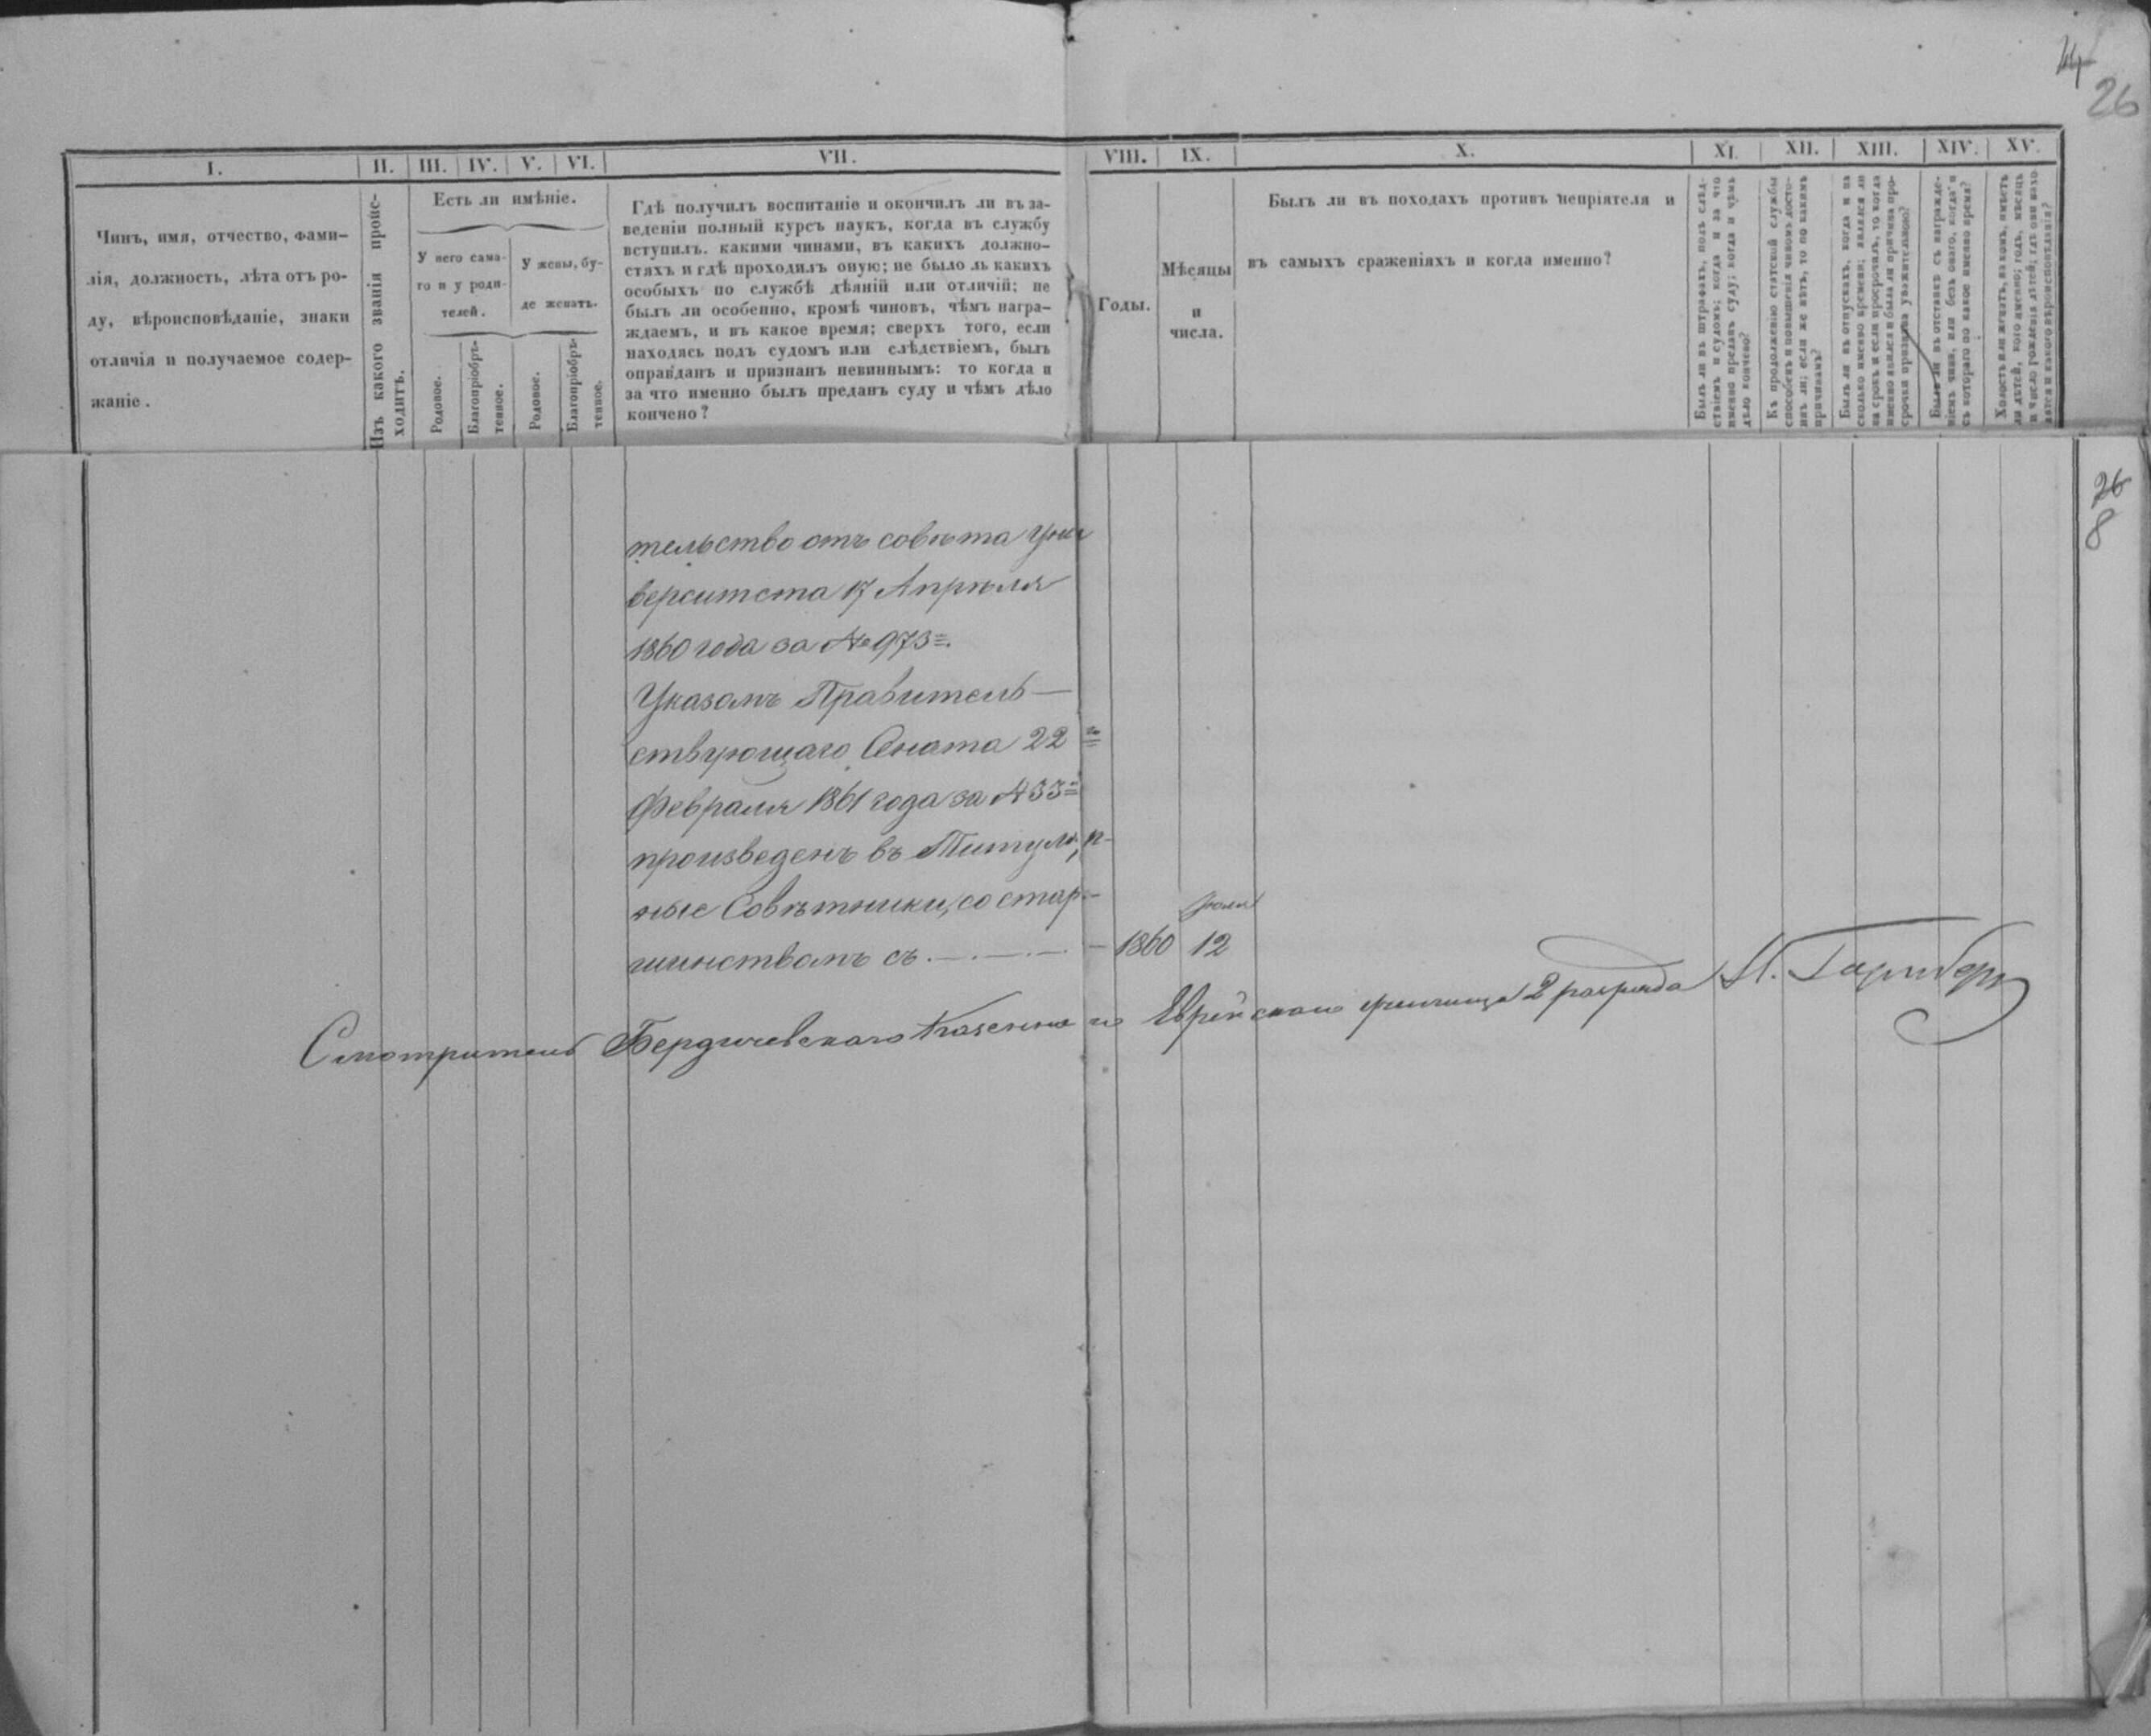 44
26
I.
II.
III.
IV.
V.
VI.
VII.
VIII.
IX.
X.
XI.
XII.
XIII.
XIV.
XV.
Чинъ, имя, отчество, фами-
лія, должность, лѣта отъ ро-
ду, вѣроисповѣданіе, знаки
отличія и получаемое содер-
жаніе.
Изъ какого званія проис-
ходитъ.
Есть ли имѣніе.
У него сама-
го и у роди-
телей.
У жены, бу-
де женатъ.
Родовое.
Благопріобрѣ-
тенное.
Родовое.
Благопріобрѣ-
тенное.
Гдѣ получилъ воспитаніе и окончилъ ли въ за-
веденіи полный курсъ наукъ, когда въ службу
вступилъ. какими чинами, въ какихъ должно-
стяхъ и гдѣ проходилъ оную; не было ль какихъ
особыхъ по службѣ дѣяній или отличій; не
былъ ли особенно, кромѣ чиновъ, чѣмъ награ-
ждаемъ, и въ какое время; сверхъ того, если
находясь подъ судомъ или слѣдствіемъ, былъ
оправданъ и признанъ невиннымъ: то когда и
за что именно былъ преданъ суду и чѣмъ дѣло
кончено?
Годы.
Мѣсяцы
и
числа.
Былъ ли въ походахъ противъ непріятеля и
въ самыхъ сраженіяхъ и когда именно?
Былъ ли въ штрафахъ, подъ слѣд-
ствіемъ и судомъ; когда и за что
именно преданъ суду; когда и чѣмъ
дѣло кончено?
Къ продолженію статской службы
способенъ и повышенія чиномъ досто-
инъ ли; если же нѣтъ, то по какимъ
причинамъ?
Былъ ли въ отпускахъ, когда и на
сколько именно времени; являлся ли
на срокъ и если просрочилъ, то когда
именно явился и была ли причина про-
срочки признана уважительною?
Былъ ли въ отставкѣ съ награжде-
ніемъ чина, или безъ онаго, когда и
съ котораго по какое именно время?
Холостъ или женатъ, на комъ, имѣетъ
ли дѣтей, кого именно; годъ, мѣсяцъ
и число рожденія дѣтей; гдѣ они нахо-
дятся и какого вѣроисповѣданія?
26
8
тельство отъ совѣта Уни
верситета 17 Апрѣля
1860 года за № 973.
Указомъ Правитель—
ствующаго Сената 22
Февраля 1861 года за № 33
произведенъ въ Титуляр-
ные Совѣтники, со стар-
шинствомъ съ — 1860 Іюля 12
Смотритель Бердичевскаго Казеннаго Еврейскаго училища 2 разряда